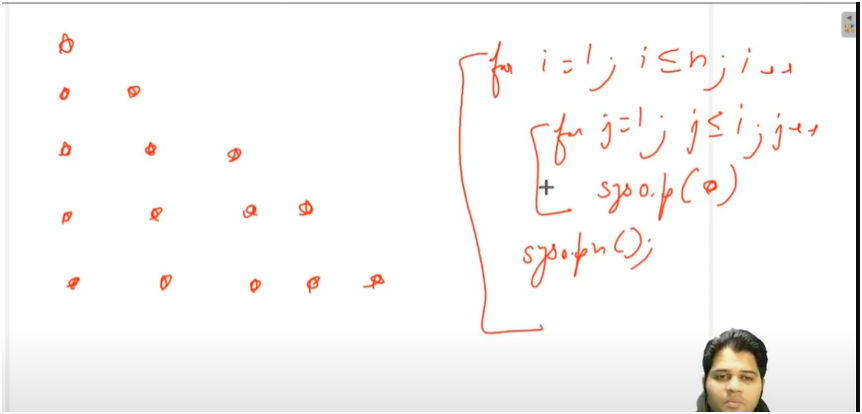 for i=1; i≤n; i++
for j=1; j≤i; j++
syso.p(0)
syso.pn();